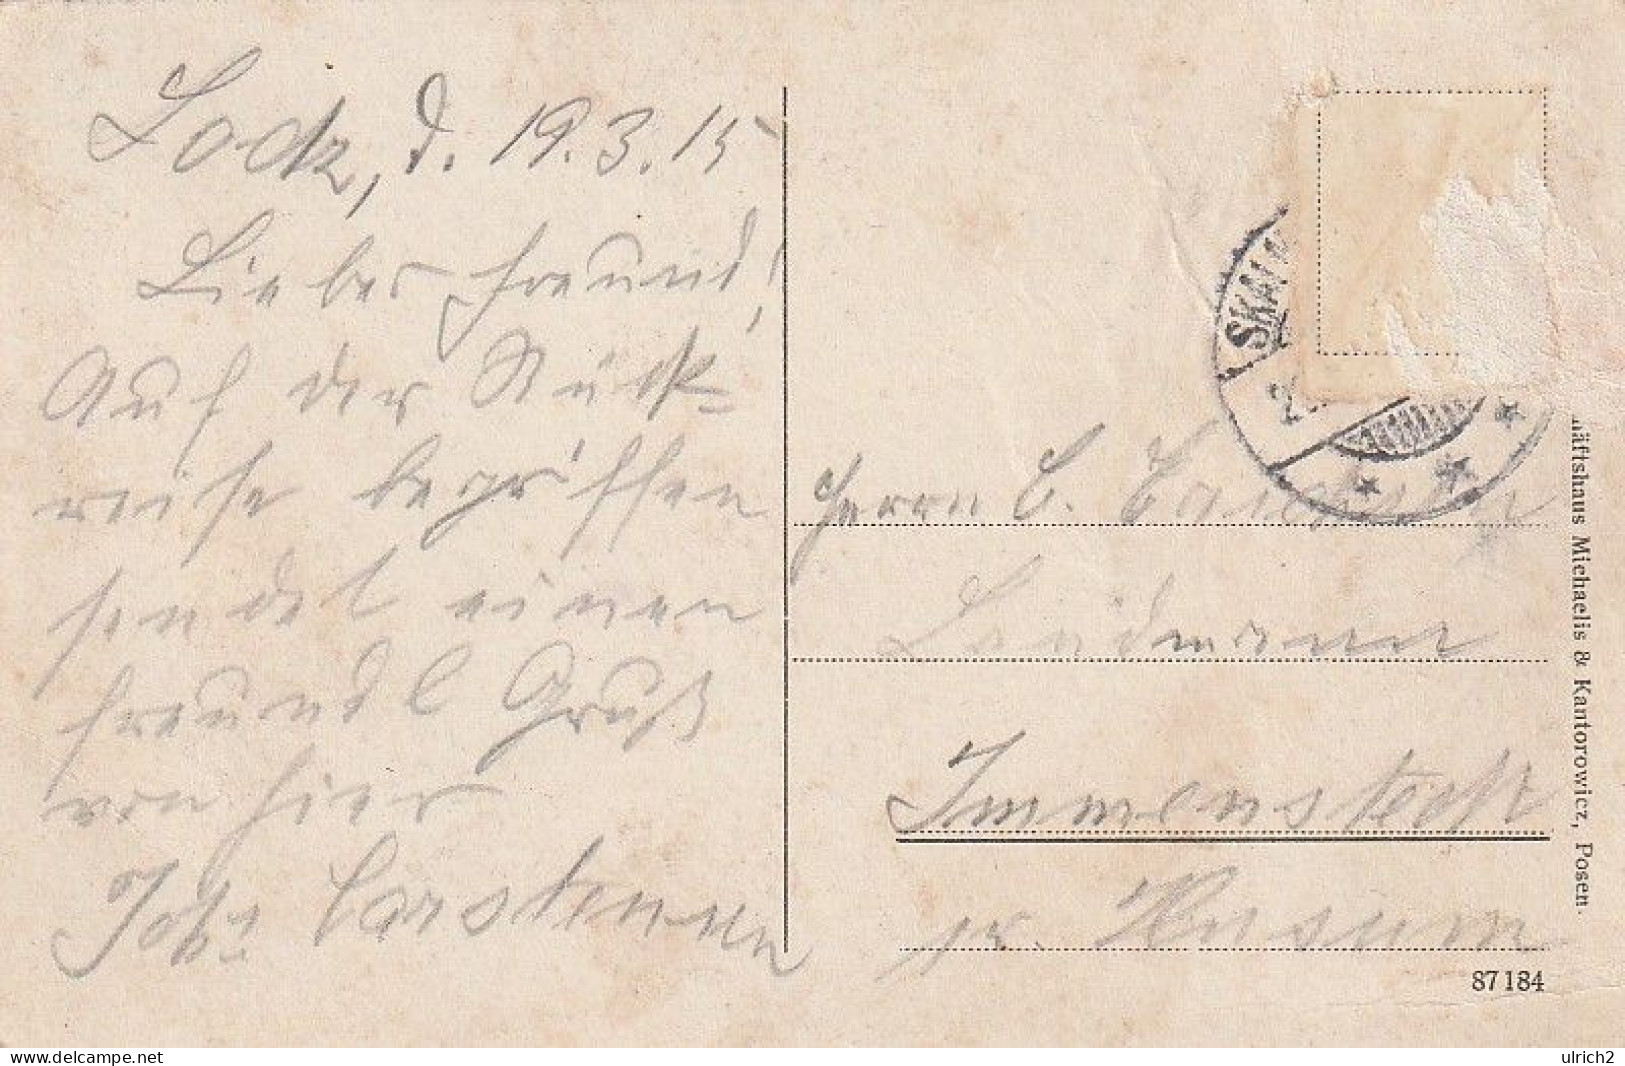 Lodz, d. 19.3.15
Lieber Freund!
Auf der Rück=
reise begriffen
sendet einen
freundl Gruß
von hier
Joh. Carstensen
Herrn C.
Landmann
Immenstedt
pr. Husum
SKAL
87184
häftshaus Michaelis & Kantorowicz, Posen.
delcampe.net
ulrich2